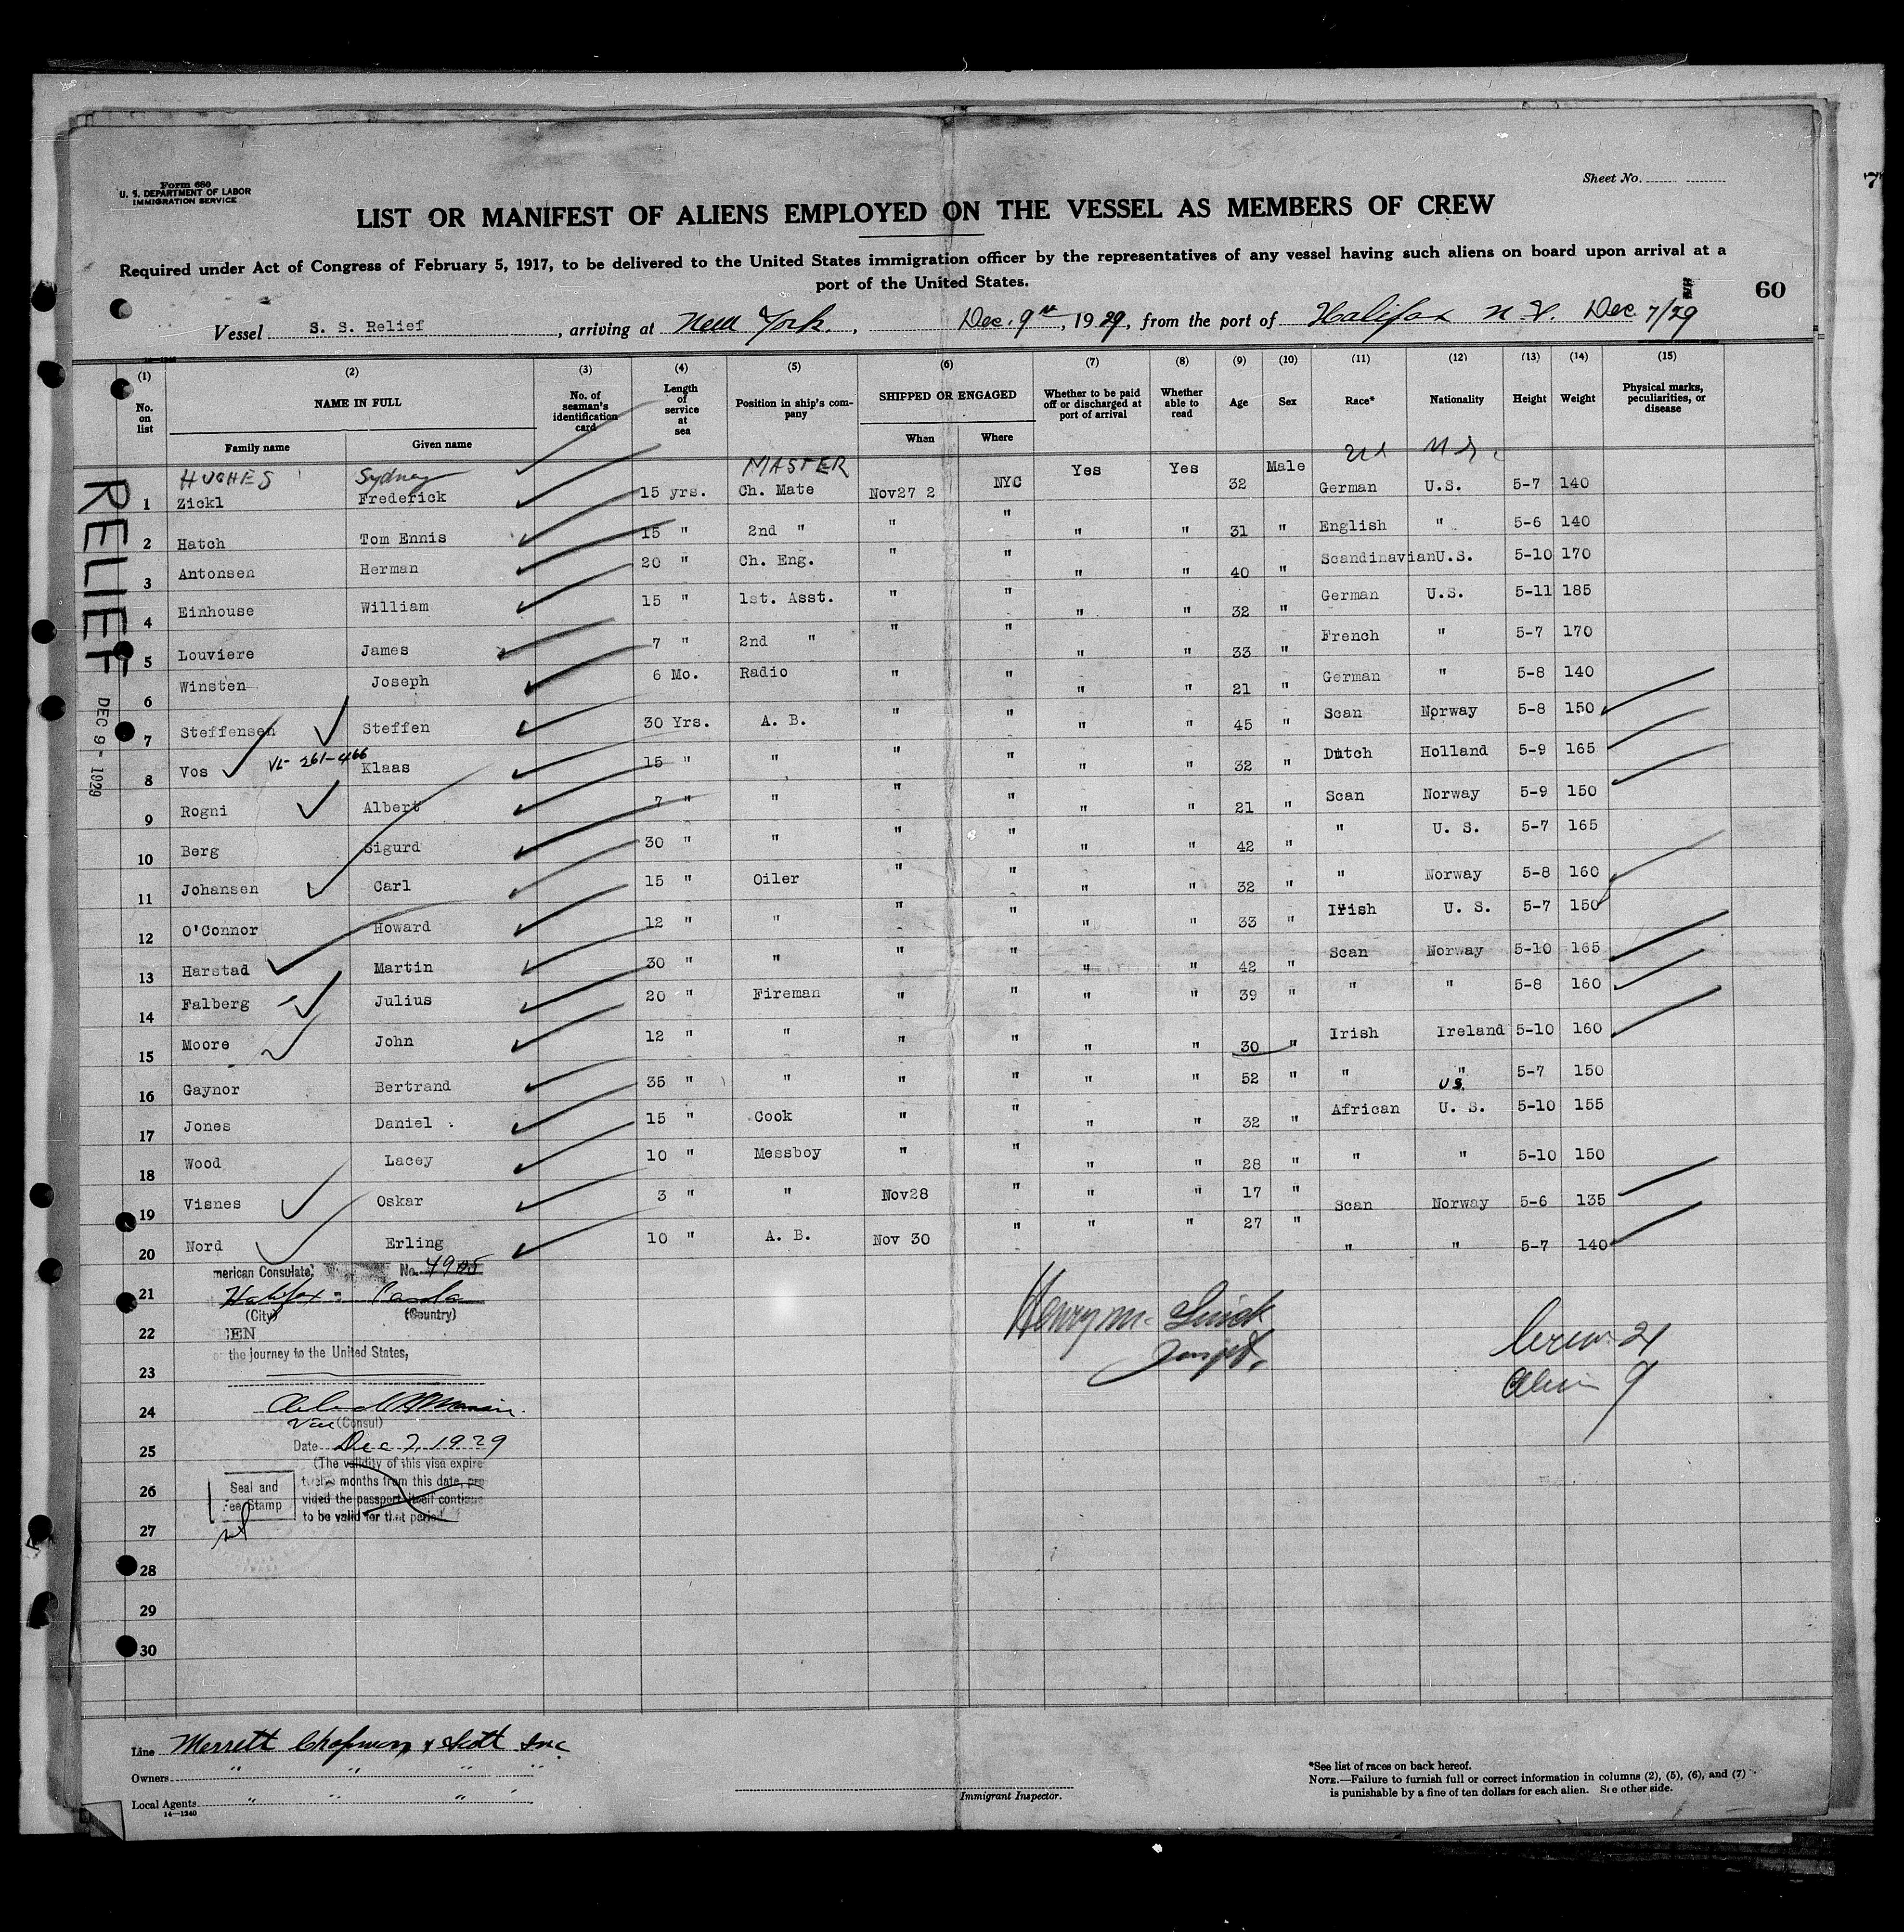 Form 680
U. S. DEPARTMENT OF LABOR
IMMIGRATION SERVICE
Sheet No.
LIST OR MANIFEST OF ALIENS EMPLOYED ON THE VESSEL AS MEMBERS OF CREW
Required under Act of Congress of February 5, 1917, to be delivered to the United States immigration officer by the representatives of any vessel having such aliens on board upon arrival at a
port of the United States.
60
Vessel S. S. Relief, arriving at New York, Dec. 9th, 1929, from the port of Halifax N.S. Dec 7/29
(1) (2) (3) (4) (5) (6) (7) (8) (9) (10) (11) (12) (13) (14) (15)
No. on list NAME IN FULL No. of seaman's identification card Length of service at sea Position in ship's company SHIPPED OR ENGAGED Whether to be paid off or discharged at port of arrival Whether able to read Age Sex Race* Nationality Height Weight Physical marks, peculiarities, or disease
Family name Given name When Where
HUGHES Sydney MASTER
1 Zickl Frederick 15 yrs. Ch. Mate Nov27 2 NYC Yes Yes 32 Male German U.S. 5-7 140
2 Hatch Tom Ennis 15 " 2nd " " " " " 31 " English " 5-6 140
3 Antonsen Herman 20 " Ch. Eng. " " " " 40 " Scandinavian U.S. 5-10 170
4 Einhouse William 15 " 1st. Asst. " " " " 32 " German U.S. 5-11 185
5 Louviere James 7 " 2nd " " " " " 33 " French " 5-7 170
6 Winsten Joseph 6 Mo. Radio " " " " 21 " German " 5-8 140
7 Steffensen Steffen 30 Yrs. A. B. " " " " 45 " Scan Norway 5-8 150
8 Vos VL- 261-466 Klaas 15 " " " " " " 32 " Dutch Holland 5-9 165
9 Rogni Albert 7 " " " " " " 21 " Scan Norway 5-9 150
10 Berg Sigurd 30 " " " " " " 42 " " U. S. 5-7 165
11 Johansen Carl 15 " Oiler " " " " 32 " " Norway 5-8 160
12 O'Connor Howard 12 " " " " " " 33 " Irish U. S. 5-7 150
13 Harstad Martin 30 " " " " " " 42 " Scan Norway 5-10 165
14 Falberg Julius 20 " Fireman " " " " 39 " " " 5-8 160
15 Moore John 12 " " " " " " 30 " Irish Ireland 5-10 160
16 Gaynor Bertrand 35 " " " " " " 52 " " " US. 5-7 150
17 Jones Daniel 15 " Cook " " " " 32 " African U. S. 5-10 155
18 Wood Lacey 10 " Messboy " " " " 28 " " " 5-10 150
19 Visnes Oskar 3 " " Nov28 " " " 17 " Scan Norway 5-6 135
20 Nord Erling 10 " A. B. Nov 30 " " " 27 " " " 5-7 140
21
22
23
24
25
26
27
28
29
30
RELIEF
DEC 9 - 1929
merican Consulate, No. 4905
Halifax
(City) (Country)
the journey to the United States,
Vice (Consul)
Date Dec 7, 1929
(The validity of this visa expire
twelve months from this date, pro
vided the passport itself continue
to be valid for that period
Seal and
Fee Stamp
Henry Mc
Crew 21
Alien 9
Line Merritt Chapman & Scott Inc
Owners " " " "
Local Agents " " " "
14—1240
Immigrant Inspector.
*See list of races on back hereof.
NOTE.—Failure to furnish full or correct information in columns (2), (5), (6), and (7)
is punishable by a fine of ten dollars for each alien. See other side.